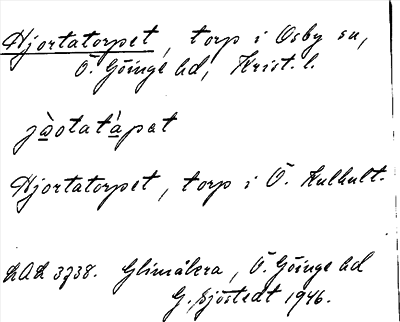 Hjortatorpet, torp i Osby sn,
Ö. Göinge hd, Krist. l.
jàotatápet
Hjortatorpet, torp i Ö. Kulhult.
LAL 3738. Glimåkra, Ö. Göinge hd
G. Sjöstedt 1946.